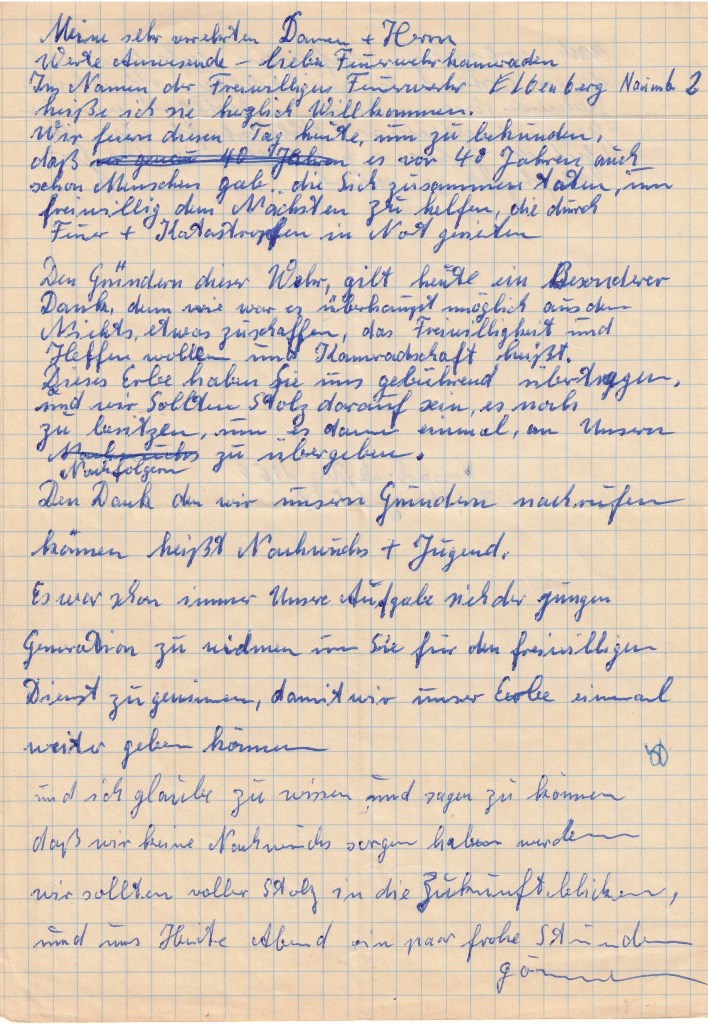 Meine sehr verehrten Damen + Herrn
Werte Anwesende – liebe Feuerwehrkameraden
Im Namen der Freiwilligen Feuerwehr Elbenberg
heiße ich sie herzlich Willkommen.
Wir feiern diesen Tag heute, um zu bekunden,
daß vor genau 40 Jahren es vor 40 Jahren auch
schon Menschen gab.. die Sich zusammen taten, um
freiwillig dem Nächsten zu helfen, die durch
Feuer + Katastropfen in Not gerieten
Den Gründern dieser Wehr, gilt heute ein Besonderer
Dank, denn wie war es überhaupt möglich aus dem
Nichts, etwas zuschaffen, das Freiwilligkeit und
Helfen wollen und Kamradschaft heißt.
Dieses Erbe haben Sie uns gebührend übertragen,
und wir Sollten Stolz darauf sein, es noch
zu besitzen, um Es dann einmal, an Unsern
Nachwuchs zu übergeben.
Nachfolgern
Den Dank den wir unsern Gründern nachrufen
können heißt Nachwuchs + Jugend.
Es war schon immer Unsere Aufgabe sich der jungen
Generation zu widmen um Sie für den freiwilligen
Dienst zu gewinnen, damit wir unser Erbe einmal
weiter geben können
und ich glaube zu wissen und sagen zu können
daß wir keine Nachwuchs sorgen haben werden
wir sollten voller Stolz in die Zukunft blicken,
und uns Heute Abend ein paar frohe Stunden
gönnen